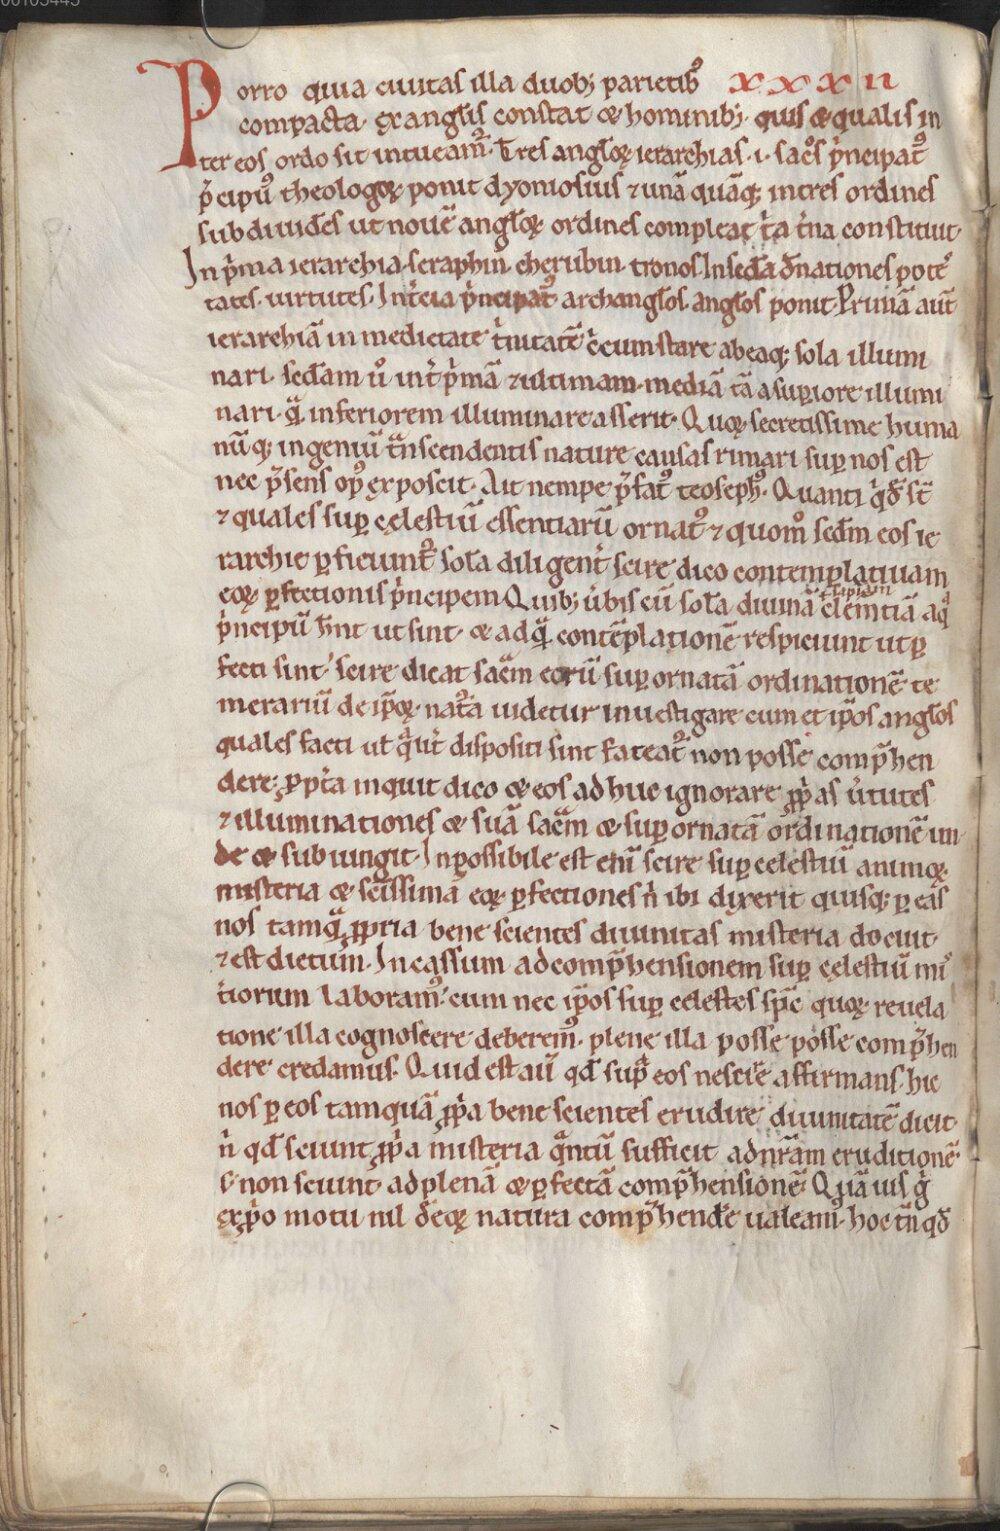 00105445
Porro quia ciuitas illa duob; parietib᷒ xxxii
compacta. ex angl̄is constat & hominib;. quis & qualis in
ter eos ordo sit intueam᷒. Tres angloꝝ ierarchias .i. sac̄s p̄ncipat᷒
p̄cipu᷒ theologoꝝ ponit dyonisius ⁊ unā quāq; in tres ordines
subdiuid̄es ut nouē angloꝝ ordines compleat t̄a t̄na constituit.
In p̄ma ierarchia. seraphin. cherubin. tronos. In sed̄a d̄nationes potes
tates. uirtutes. In t̄cia p̄ncipat᷒ archanglos. anglos ponit. Primā aut̄
ierarchiā in medietate t̄nitatē c̄cumstare ab eaq; sola illumi
nari. sed̄am u͛o int̄ p̄mā ⁊ ultimam. mediā tā a superiore illumi
nari. q̄ā inferiorem illuminare asserit. Quoꝝ secretissime huma
nūq; ingeniū t̄nscendentis nature causas rimari sup̱ nos est
nec p̄sens op᷒ exposcit. Ait nempe p̄fat᷒ teosoph᷒. Quanti q̄d̄ st̄
⁊ quales sup̱ cęlestiū essentiarū ornat᷒ ⁊ quom͛o sed̄m eos ie
rarchie ꝑficiunt᷒ sola diligent̄ scire dico contemplatiuam
eoꝝ ꝑfectionis p̄ncipem. Quib; u̓bis cū sola diuinā clem̄tiā aq̄
p̄ncipū h̄nt ut sint. & ad q̄ā contēplationē respiciunt ut ꝑ
fecti sint. scire dicat sac̄m eorū sup̱ ornatā ordinationē te
merariū de ip̄oꝝ nat᷒a uidetur inuestigare cum et ip̄os anglos
quales facti ut̄ q̄lit̄ dispositi sint fateat᷒ non posse comp̄hen
dere. ꝓpt̄a inquit dico & eos adhuc ignorare ꝓp̄as u̓tutes
⁊ illuminationes & suā sac̄m & sup̱ ornatā ordinationē un
de & subiungit. Inpossibile est eni̅ scire sup̱ celestiū animoꝝ
misteria & sc̄issimā eoꝝ ꝑfectiones n̄ ibi dixerit quisq; ꝑ eas
nos tamq̄ā ꝓpria bene scientes diuinitas misteria docuit.
⁊ est dictum. In cassum ad comp̄hensionem sup̱ cęlestiū mi᷒
t̄iorum laboram᷒. cum nec ip̄os sup̱ celestes sp̄c quoꝝ reuela
tione illa cognoscere deberem᷒. plene illa posse posse comp̄hen
dere credamus. Quid est au̅ qd̄ sup̄ eos nescire affirmans. hic
nos ꝑ eos tamquā ꝓp̄a bene scientes erudire diuinitatē dicit.
n̄ qd̄ sciunt ꝓp̄a misteria q̄ntū sufficit ad nr̄am eruditionē.
s; non sciunt ad plenā & ꝑfectā comp̄hensionē. Quāuis g̓
ex p̄o motu nil de eoꝝ natura comp̄hend̄e ualeam᷒. hoc tn̄ qd̄